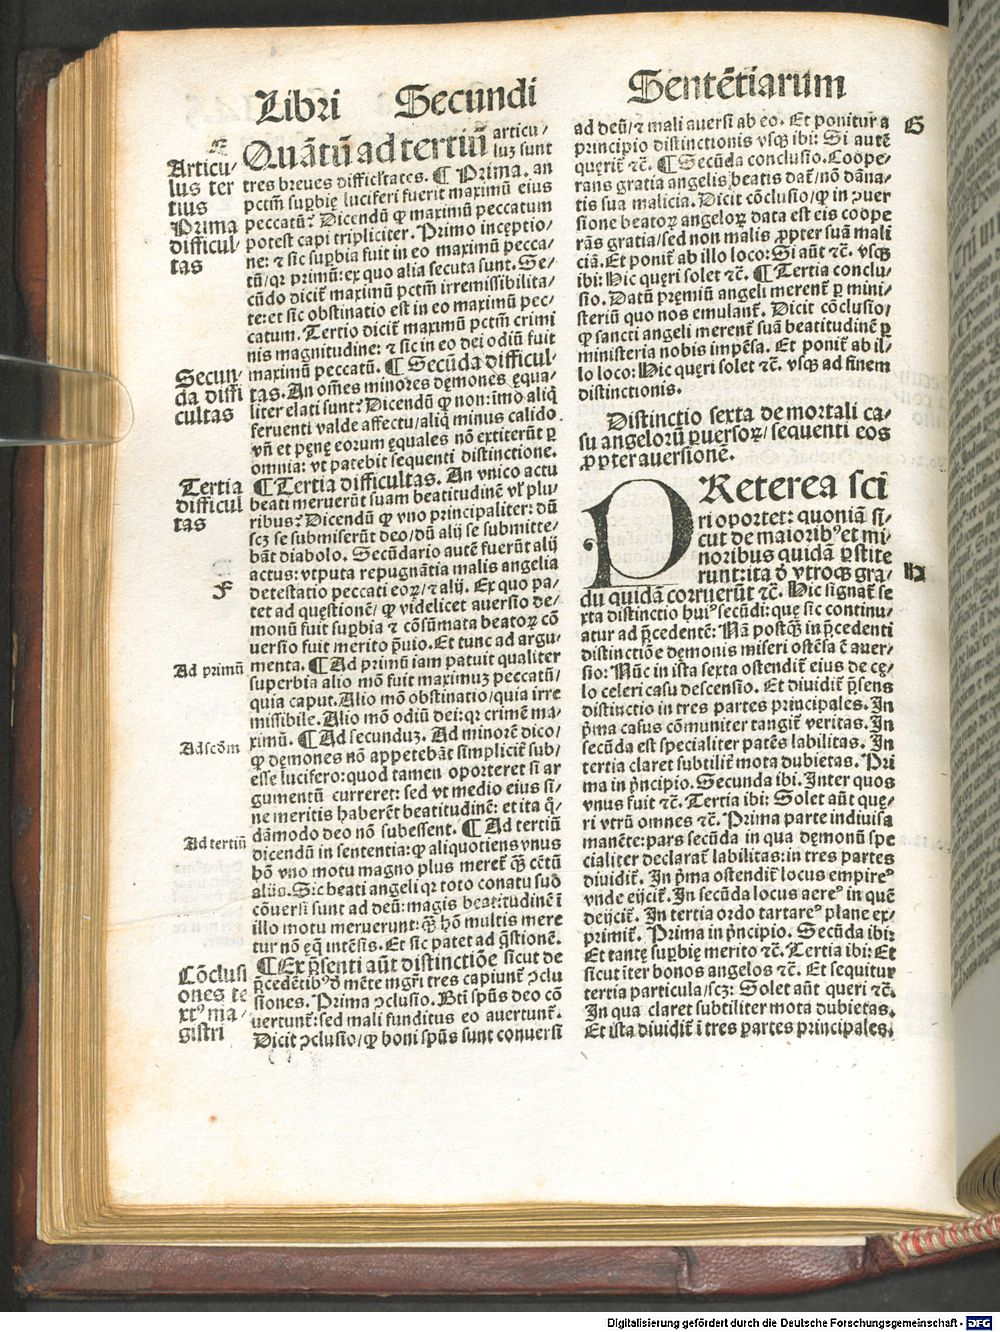 Libri Secundi Sentētiarum
E
Articu-
lus ter
tius
Prima
difficul-
tas
Secun-
da diffi
cultas
Tertia
difficul
tas
F
Ad primū
Ad scōm
Ad tertiū
Cōclusi
ones te
xtꝰ ma-
gistri
Quātū ad tertiū articu/
luꝫ sunt
tres breues difficl̄tates. ¶ Prima. an
pctm̄ suꝑbię luciferi fuerit maximū eius
peccatū? Dicendū ꝙ maximū peccatum
potest capi tripliciter. Primo inceptio/
ne: ⁊ sic suꝑbia fuit in eo maximū pecca-
tū/qꝛ primū: ex quo alia secuta sunt. Se-
cūdo dicit̄ maximū pctm̄ irremissibilita/
te: et sic obstinatio est in eo maximū pec-
catum. Tertio dicit̄ maximū pctm̄ crimi
nis magnitudine: ⁊ sic in eo dei odiū fuit
maximū peccatū. ¶ Secūda difficul-
tas. An om̄es minores dęmones ęqua/
liter elati sunt? Dicendū ꝙ non: īmo aliq̄
feruenti valde affectu/aliq̄ minus calido.
vn̄ et pęnę eorum ęquales nō extiterūt ꝑ
omnia: vt patebit sequenti distinctione.
¶ Tertia difficultas. An vnico actu
beati meruerūt suam beatitudinē vl̓ plu-
ribus? Dicendū ꝙ vno principaliter: dū
scꝫ se submiserūt deo/dū alij se submitte/
bāt diabolo. Secūdario autē fuerūt alij
actus: vtputa repugnātia malis angelia
detestatio peccati eoꝝ/⁊ alij. Ex quo pa-
tet ad quęstionē/ꝙ videlicet auersio dę-
monū fuit suꝑbia ⁊ cōsūmata beatoꝝ cō
uersio fuit merito p̄uio. Et tunc ad argu-
menta. ¶ Ad primū iam patuit qualiter
superbia alio mō fuit maximuꝫ peccatū/
quia caput. Alio mō obstinatio/quia irre
missibile. Alio mō odiū dei: qꝛ crimē ma-
ximū. ¶ Ad secunduꝫ. Ad minorē dico/
ꝙ dęmones nō appetebāt simplicit̄ sub/
esse lucifero: quod tamen oporteret si ar
gumentū curreret: sed vt medio eius si-
ne meritis haberēt beatitudinē: et ita q̄-
dāmodo deo nō subessent. ¶ Ad tertiū
dicendū in sententia: ꝙ aliquotiens vnus
hō vno motu magno plus meret̄ ꝙ̄ cētū
aliis. Sic beati angeli qꝛ toto conatu suo
cōuersi sunt ad deū: magis beatitudinē ī
illo motu meruerunt: ꝙ̄ hō multis mere
tur nō ęq̄ intēsis. Et sic patet ad q̄stionē.
¶ Ex p̄senti aūt distinctiōe sicut de
p̄cedētibꝰ ō mēte mgr̄i tres capiunt̄ ↄclu
siones. Prima ↄclusio. Bt̄i sp̄ūs deo cō
uertunt̄: sed mali funditus eo auertunt̄.
Dicit ↄclusio/ꝙ boni sp̄ūs sunt conuersi
ad deū/⁊ mali auersi ab eo. Et ponitur a
principio distinctionis vsqꝫ ibi: Si autē
querit̄ ⁊c̄. ¶ Secūda conclusio. Coope-
rans gratia angelis beatis dat̄/nō dāna-
tis sua malicia. Dicit cōclusio/ꝙ in ↄuer
sione beatoꝝ angeloꝝ data est eis coope
rās gratia/sed non malis ꝓpter suā mali
ciā. Et ponit̄ ab illo loco: Si aūt ⁊c̄. vsqꝫ
ibi: Hic queri solet ⁊c̄. ¶ Tertia conclu-
sio. Datū pręmiū angeli merent̄ ꝑ mini-
steriū quo nos emulant̄. Dicit cōclusio/
ꝙ sancti angeli merent̄ suā beatitudinē ꝑ
ministeria nobis impēsa. Et ponit̄ ab il-
lo loco: Hic queri solet ⁊c̄. vsqꝫ ad finem
distinctionis.
Distinctio sexta de mortali ca-
su angelorū ꝑuersoꝝ/sequenti eos
ꝓpter auersionē.
PReterea sci
ri oportet: quoniā si-
cut de maioribꝰ et mi-
noribus quidā ꝑstite
runt: ita ō vtroqꝫ gra-
du quidā corruerūt ⁊c̄. Hic signat̄ se
xta distinctio huiꝰ secūdi: quę sic continu/
atur ad p̄cedentē: Nā postqꝫ̄ in p̄cedenti
distinctiōe dęmonis miseri ostēsa ē auer-
sio: Nūc in ista sexta ostendit̄ eius de cę-
lo celeri casu descensio. Et diuidit̄ p̄sens
distinctio in tres partes principales. In
p̄ma casus cōmuniter tangit̄ veritas. In
secūda est specialiter patēs labilitas. In
tertia claret subtilit̄ mota dubietas. Pri
ma in p̄ncipio. Secunda ibi. Inter quos
vnus fuit ⁊c̄. Tertia ibi: Solet aūt quę-
ri vtrū omnes ⁊c̄. Prima parte indiuisa
manēte: pars secūda in qua dęmonū spe
cialiter declarat̄ labilitas: in tres partes
diuidit̄. In p̄ma ostendit̄ locus empireꝰ
vnde eijcit̄. In secūda locus aereꝰ in quē
deijcit̄. In tertia ordo tartareꝰ plane ex-
primit̄. Prima in p̄ncipio. Secūda ibi:
Et tantę suꝑbię merito ⁊c̄. Tertia ibi: Et
sicut iter bonos angelos ⁊c̄. Et sequitur
tertia particula/scꝫ: Solet aūt queri ⁊c̄.
In qua claret subtiliter mota dubietas.
Et ista diuidit̄ ī tres partes principales.
G
H
Digitalisierung gefördert durch die Deutsche Forschungsgemeinschaft - DFG